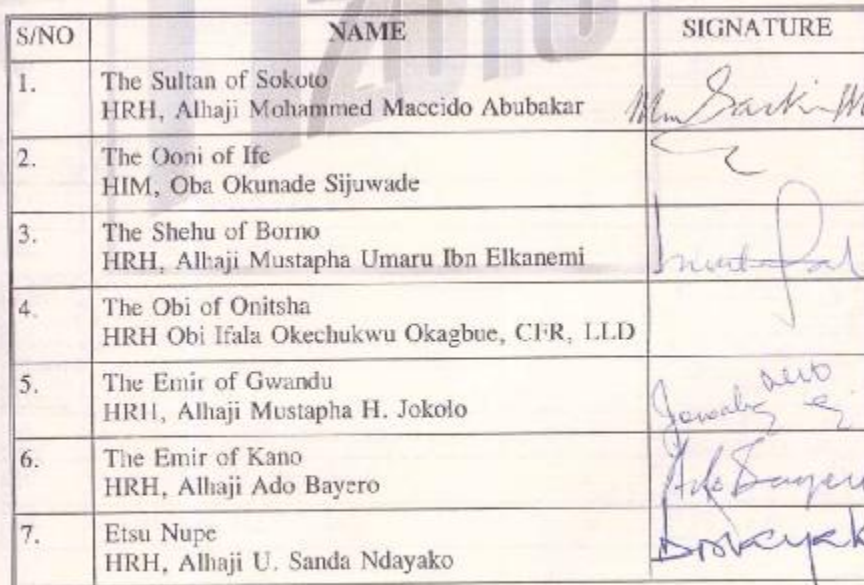 S/NO NAME SIGNATURE
1. The Sultan of Sokoto
HRH, Alhaji Mohammed Maccido Abubakar
2. The Ooni of Ife
HIM, Oba Okunade Sijuwade
3. The Shehu of Borno
HRH, Alhaji Mustapha Umaru Ibn Elkanemi
4. The Obi of Onitsha
HRH Obi Ifala Okechukwu Okagbue, CFR, LLD
5. The Emir of Gwandu
HRH, Alhaji Mustapha H. Jokolo
6. The Emir of Kano
HRH, Alhaji Ado Bayero
Ado Bayero
7. Etsu Nupe
HRH, Alhaji U. Sanda Ndayako